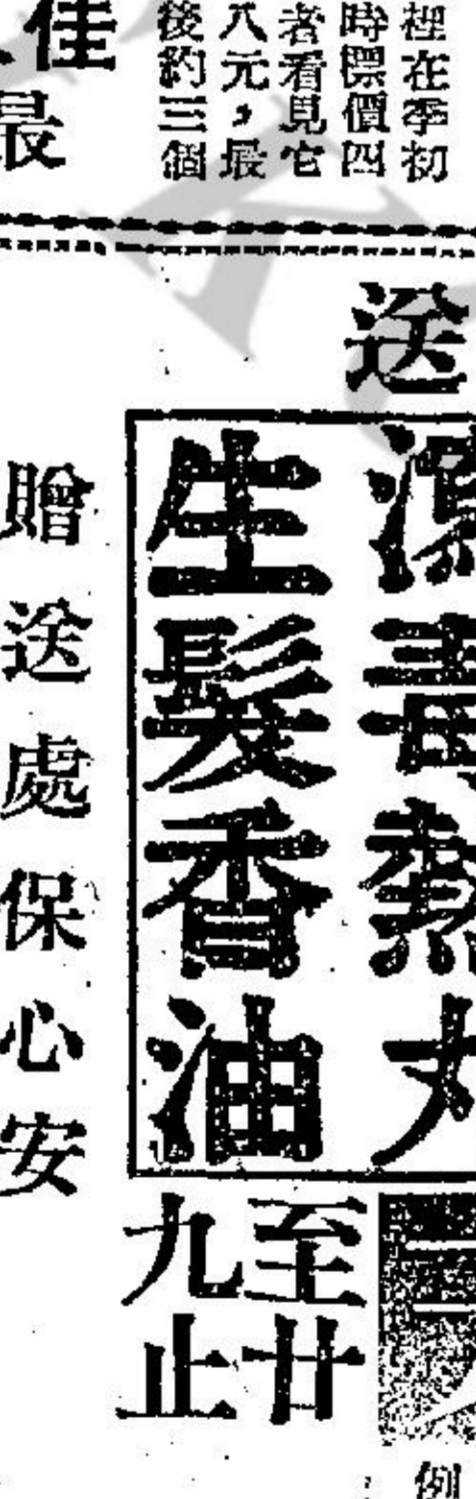 裡在季初
時標價四
者看見它
八元，最
後約三個
佳
最
送
濕毒熱丸
生髮香油
至廿
九止
贈送處保心安
例